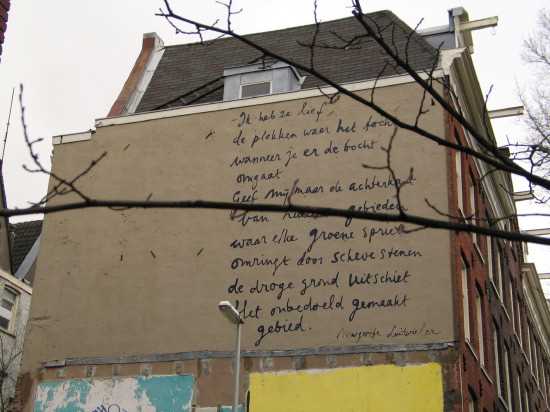 Ik heb ze lief
de plekken waar het tocht
wanneer je er de bocht
omgaat
Geef mij maar de achterkant
van gebieden
waar elke groene spriet
omringt door scheve stenen
de droge grond uitschiet
Het onbedoeld gemaakt
gebied.